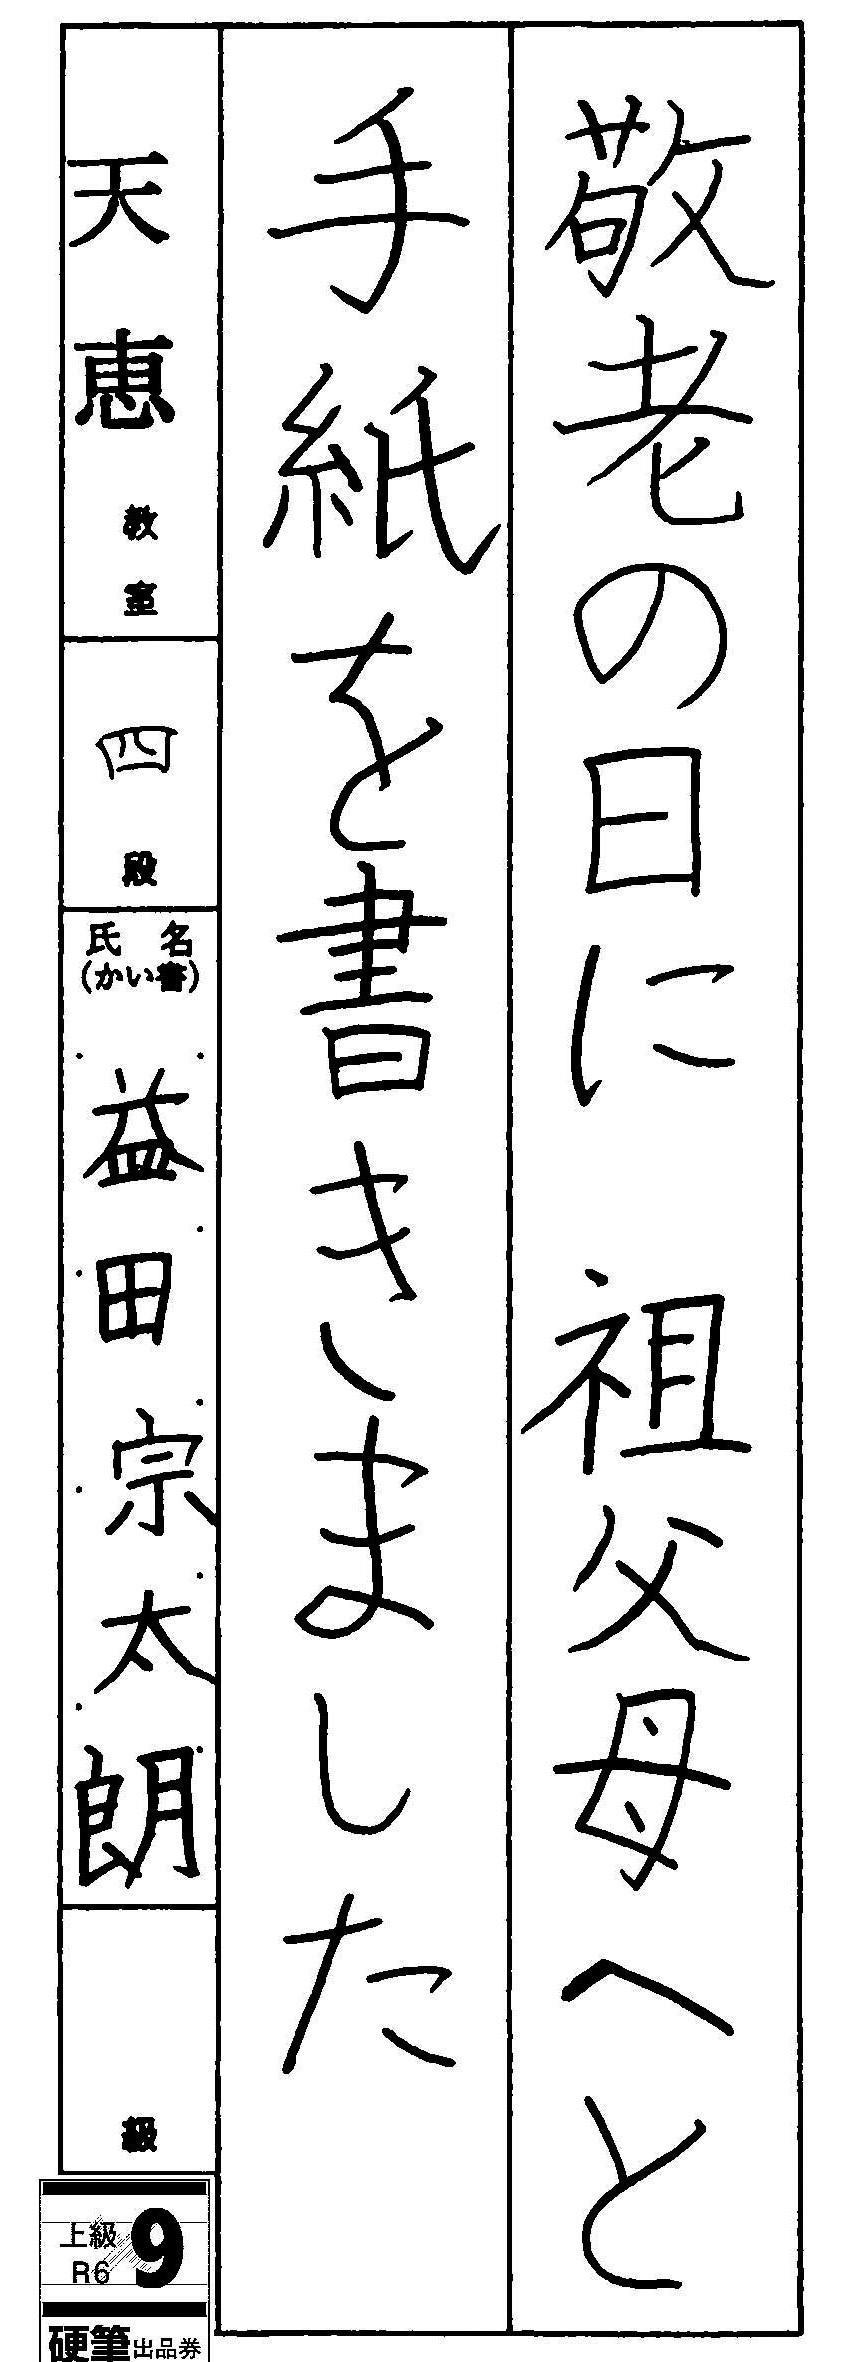 敬老の日に　祖父母へと
手紙を書きました
天恵教室
四段
氏名
(かい書)
益田宗太朗
級
上級
R6
9
硬筆出品券